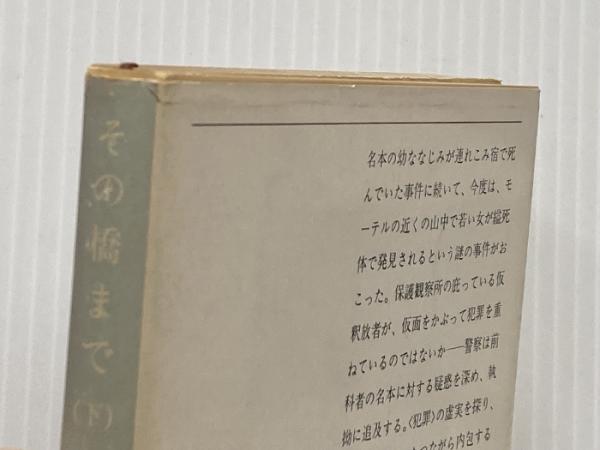 その橋まで(下)
名本の幼ななじみが連れこみ宿で死
んでいた事件に続いて、今度は、モ
ーテルの近くの山中で若い女が縊死
体で発見されるという謎の事件がお
こった。保護観察所の庇っている仮
釈放者が、仮面をかぶって犯罪を重
ねているのではないか──警察は前
科者の名本に対する疑惑を深め、執
拗に追及する。〈犯罪〉の虚実を探り、
つながら内包する